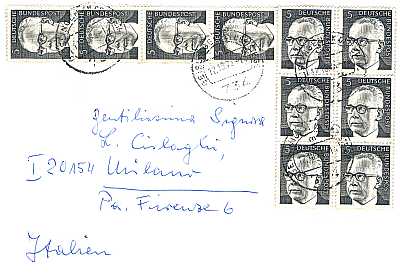 DEUTSCHE BUNDESPOST 5
DEUTSCHE BUNDESPOST 5
DEUTSCHE BUNDESPOST 5
DEUTSCHE BUNDESPOST 5
5 DEUTSCHE BUNDESPOST
5 DEUTSCHE BUNDESPOST
5 DEUTSCHE BUNDESPOST
5 DEUTSCHE BUNDESPOST
5 DEUTSCHE BUNDESPOST
5 DEUTSCHE BUNDESPOST
Gentilissima Signora
L.
I 20154 Milano
Firenze 6
Italien